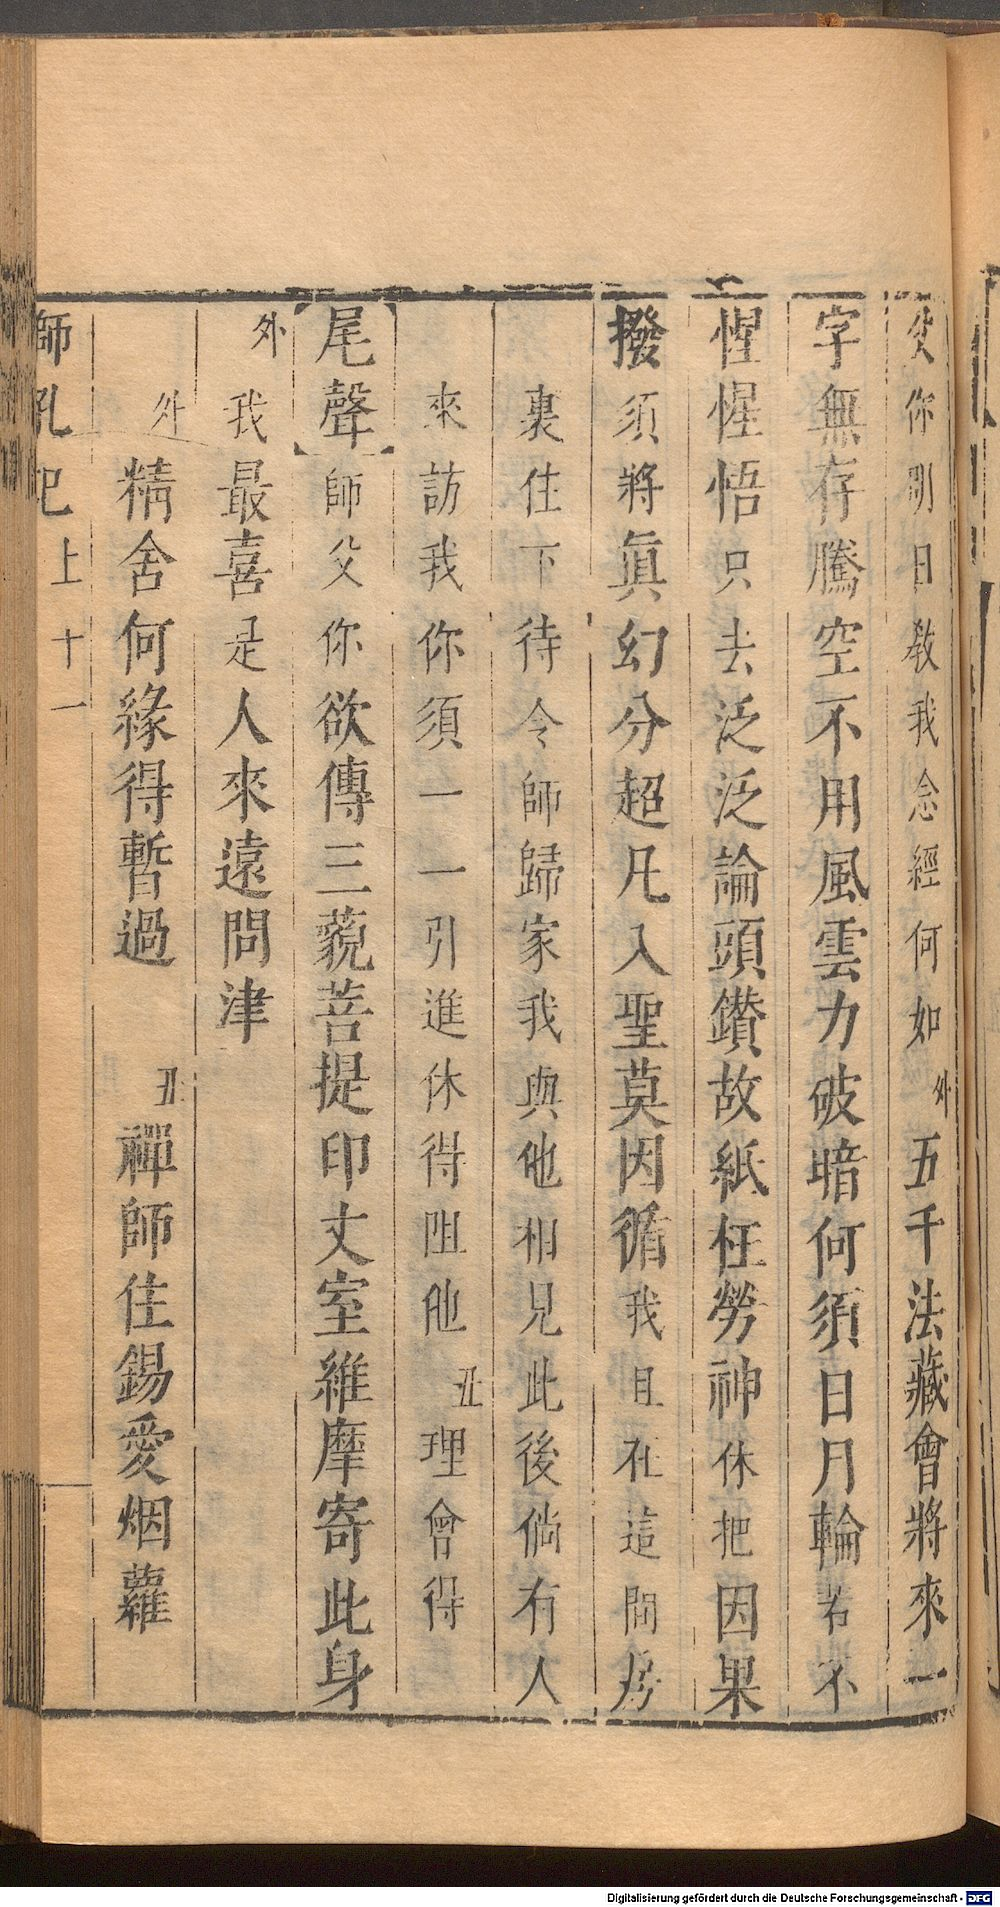 父你明日教我念經何如外五千法藏會將來一
字無存騰空不用風雲力破暗何須日月輪若不
惺惺悟只去泛泛論頭鑚故紙枉勞神休把因果
撥須將眞幻分超凡入聖莫因循我且在這間房
裏住下待令師歸家我與他相見此後倘有人
來訪我你須一一引進休得阻他丑理會得
尾聲師父你欲傳三藐菩提印丈室維摩寄此身
外我最喜是人來遠問津
外精舍何緣得暫過 丑禪師住錫愛烟蘿
師孔巳上十一
Digitalisierung gefördert durch die Deutsche Forschungsgemeinschaft - DFG